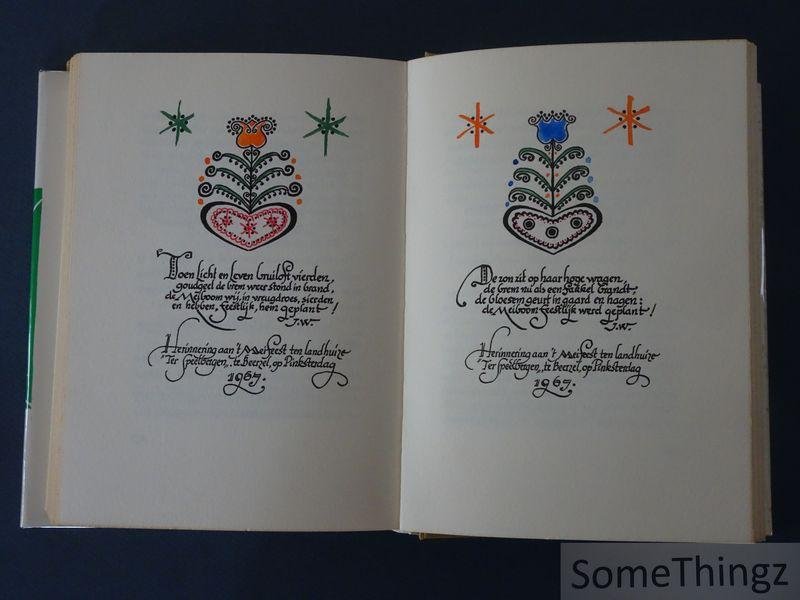 Toen licht en leven bruiloft vierden,
goudgeel de brem weer stond in brand,
de Meiboom wij, in vreugdroes, sierden
en hebben, feestlijk, hem geplant!
J.W.
Herinnering aan 't Meifeest ten landhuize
"Ter Speelbergen", te Beerzel, op Pinksterdag
1967.
De zon zit op haar hoge wagen,
de brem nu als een fakkel brandt,
de bloesem geurt in gaard en hagen:
de Meiboom feestlijk werd geplant!
J.W.
Herinnering aan 't Meifeest ten landhuize
"Ter Speelbergen", te Beerzel, op Pinksterdag
1967.
SomeThingz